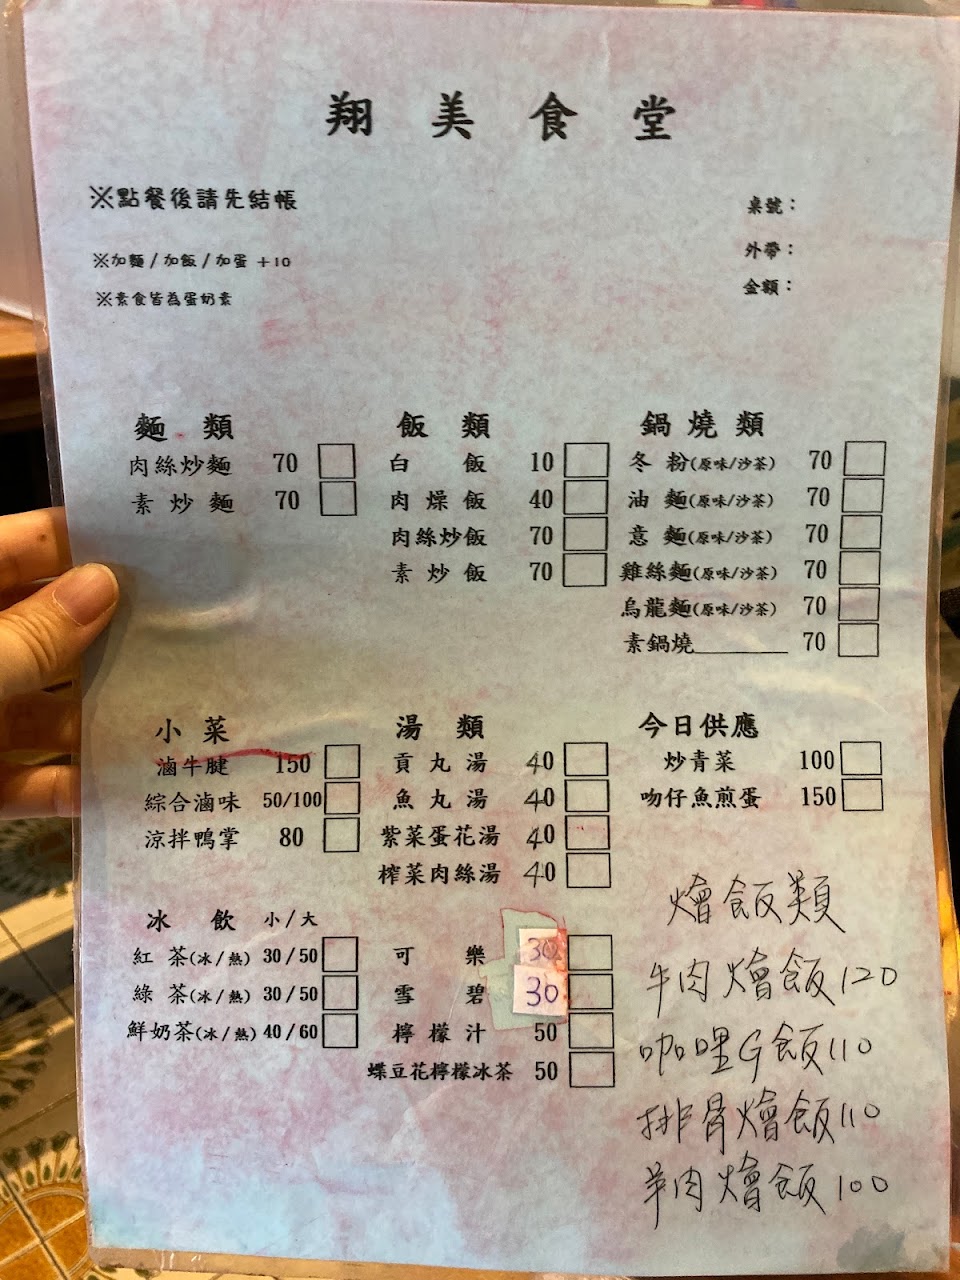 翔美食堂
※點餐後請先結帳
※加麵/加飯/加蛋 +10
※素食皆為蛋奶素
桌號：
外帶：
金額：
麵類
肉絲炒麵 70
素炒麵 70
飯類
白飯 10
肉燥飯 40
肉絲炒飯 70
素炒飯 70
鍋燒類
冬粉(原味/沙茶) 70
油麵(原味/沙茶) 70
意麵(原味/沙茶) 70
雞絲麵(原味/沙茶) 70
烏龍麵(原味/沙茶) 70
素鍋燒________ 70
小菜
滷牛腱 150
綜合滷味 50/100
涼拌鴨掌 80
湯類
貢丸湯 40
魚丸湯 40
紫菜蛋花湯 40
榨菜肉絲湯 40
今日供應
炒青菜 100
吻仔魚煎蛋 150
冰飲 小/大
紅茶(冰/熱) 30/50
綠茶(冰/熱) 30/50
鮮奶茶(冰/熱) 40/60
可樂 30
雪碧 30
檸檬汁 50
蝶豆花檸檬冰茶 50
燴飯類
牛肉燴飯120
咖哩G飯110
排骨燴飯110
羊肉燴飯100